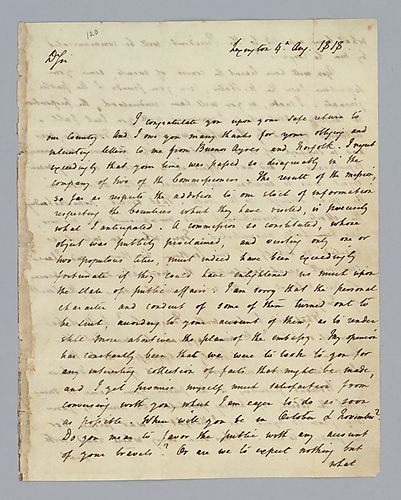 120
Lexington 4th Aug. 1818
Dr Sir
I congratulate you upon your safe return to
our Country. And I owe you many thanks for your obliging and
interesting letters to me from Buenos Ayres and Norfolk. I regret
exceedingly that your time was passed so disagreeably in the
company of two of the Commissioners. The result of the mission,
so far as respects the addition to our stock of information
respecting the Countries which they have visited, is precisely
what I anticipated. A commission so constituted, whose
object was publicly proclaimed, and visiting only one or
two populous Cities, must indeed have been exceedingly
fortunate if they could have enlightened us much upon
the state of public affairs. I am sorry that the personal
character and conduct of some of them turned out to
be such, according to your account of them, as to render
still more abortive the plan of the embassy. My opinion
has constantly been that we were to look to you for
any interesting collection of facts that might be made,
and I yet promise myself much satisfaction from
conversing with you, what I am eager to do as soon
as possible. Where will you be in October & November?
Do you mean to favor the public with any account
of your travels? Or are we to expect nothing but
what